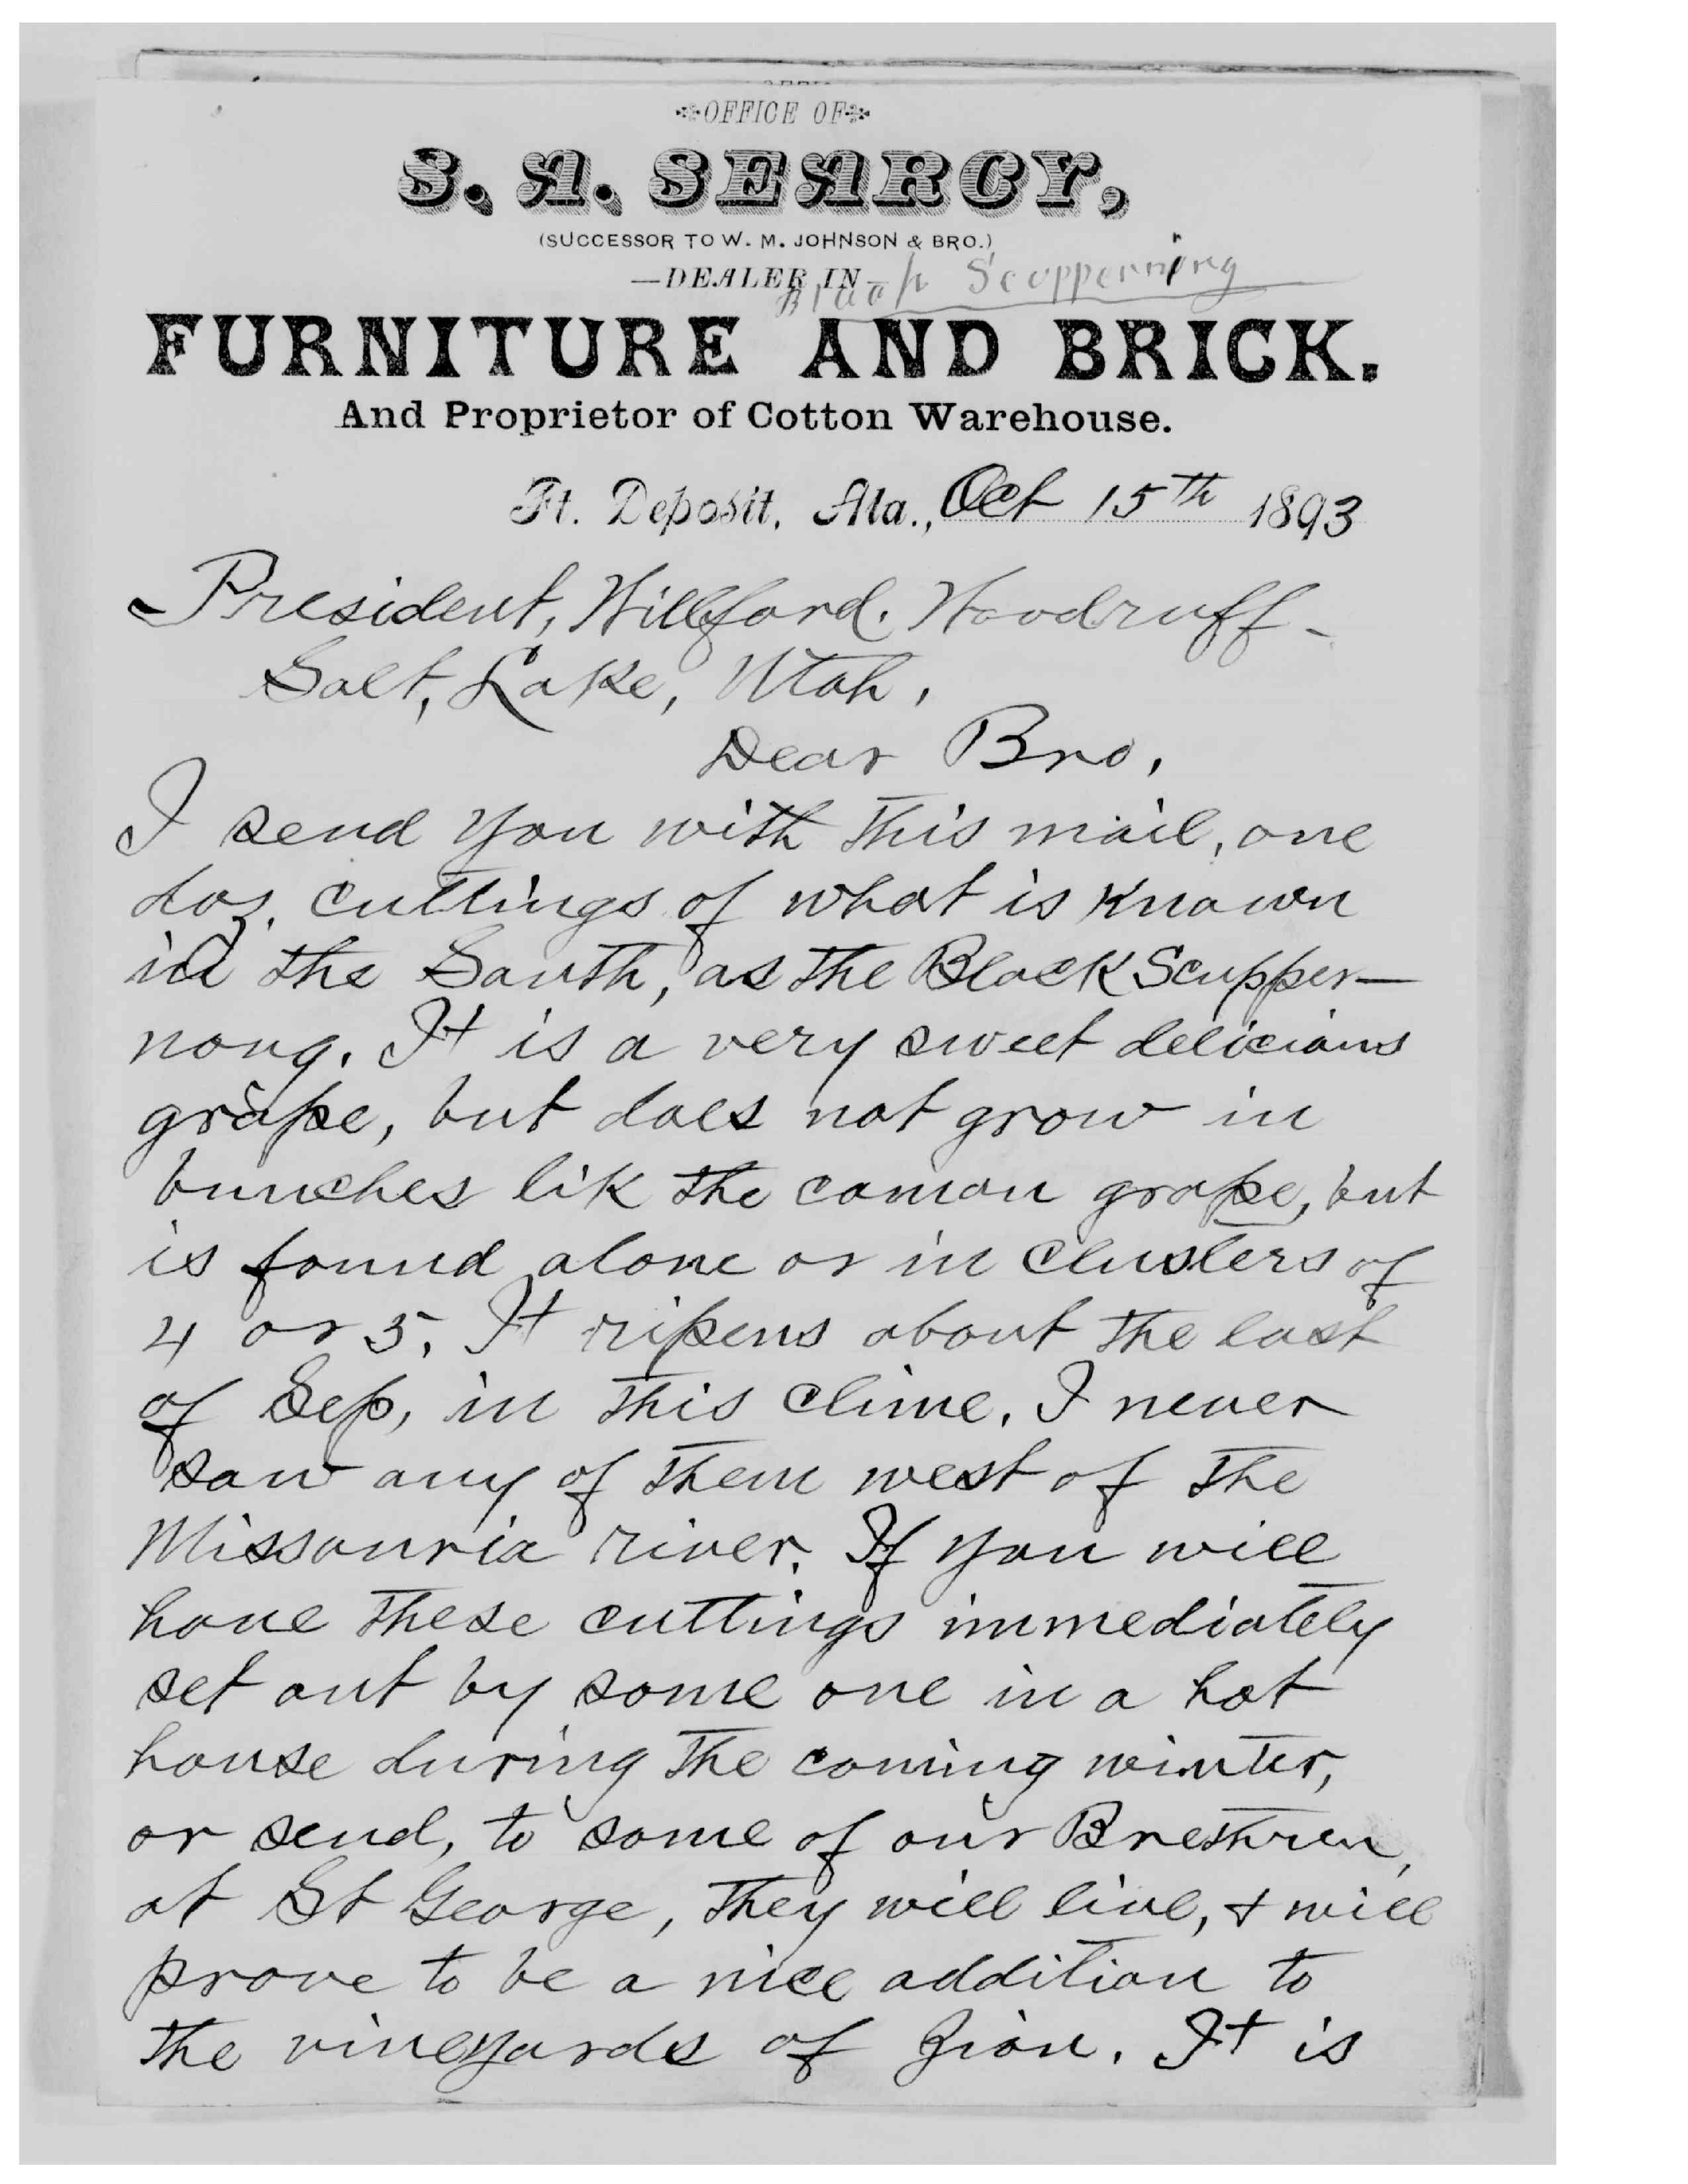 OFFICE OF
S. A. SEARCY,
(SUCCESSOR TO W. M. JOHNSON & BRO.)
—DEALER IN—
Black Scuppernong
FURNITURE AND BRICK.
And Proprietor of Cotton Warehouse.
Ft. Deposit, Ala., Oct 15th 1893
President, Willford. Woodruff-
Salt, Lake, Utah,
Dear Bro,
I send you with this mail, one
doz. cuttings of what is known
in the South, as the Black Scupper-
nong. It is a very sweet delicious
grape, but does not grow in
bunches lik the comon grape, but
is found alone or in clusters of
4 or 5. It ripens about the last
of Sep, in this clime. I never
saw any of them west of the
Missouria river. If you will
have these cuttings immediately
set out by some one in a hot
house during the coming winter,
or send, to some of our Brethren,
at St George, they will live, & will
prove to be a nice addition to
the vineyards of Zion. It is